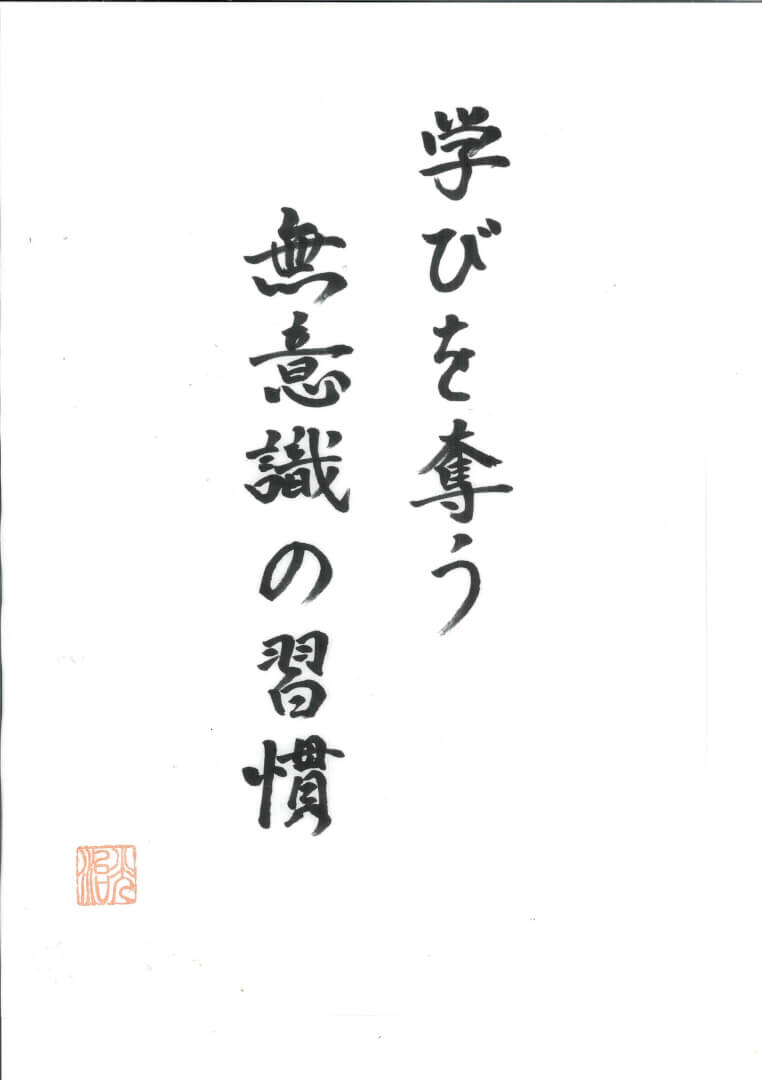 学びを奪う
無意識の習慣